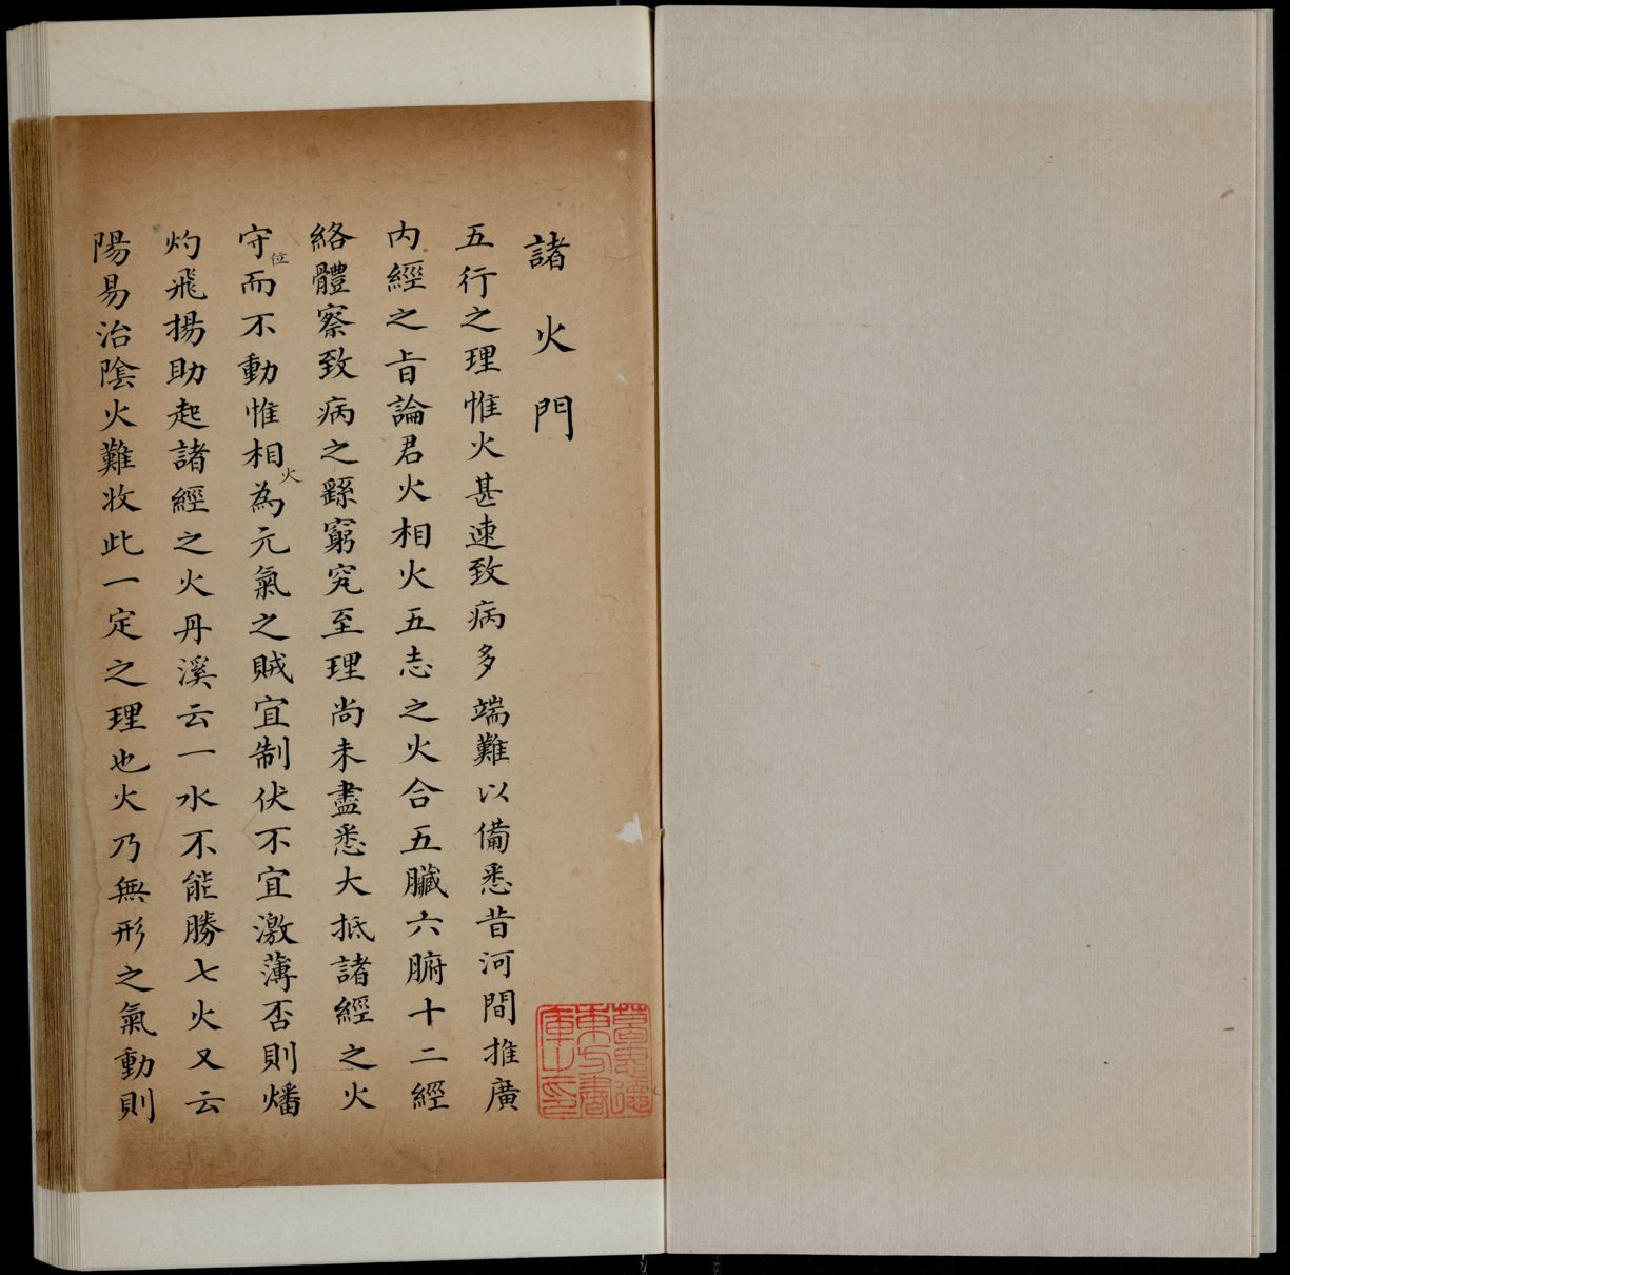 諸火門
五行之理惟火甚速致病多端難以備悉昔河間推廣
内經之旨論君火相火五志之火合五臟六腑十二經
絡體察致病之繇窮究至理尚未盡悉大抵諸經之火
守位而不動惟相火為元氣之賊宜制伏不宜激薄否則燔
灼飛揚助起諸經之火丹溪云一水不能勝七火又云
陽易治陰火難收此一定之理也火乃無形之氣動則
葛思德
東方書
庫之印